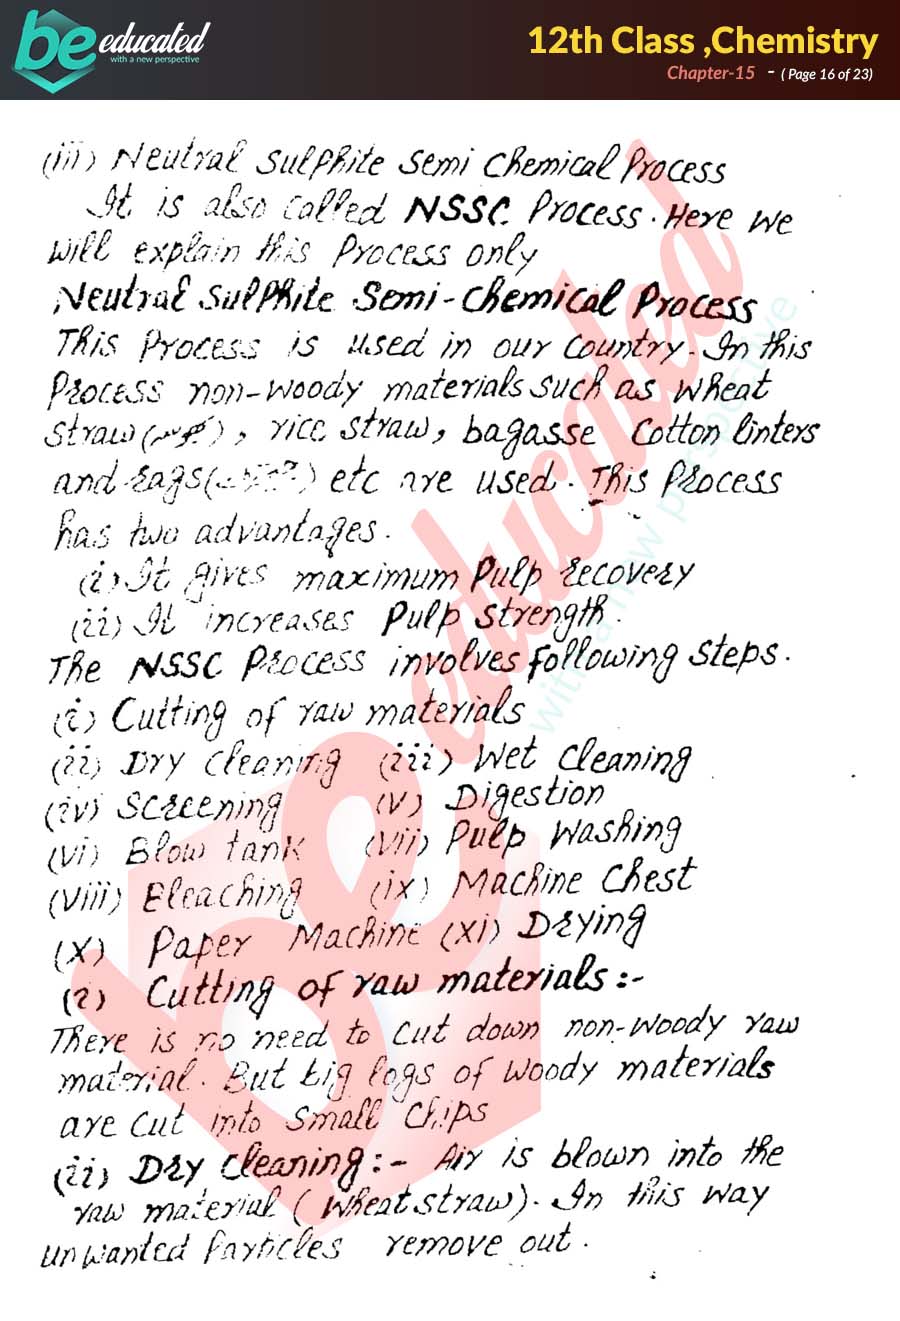 be educated
with a new perspective
12th Class ,Chemistry
Chapter-15 - ( Page 16 of 23)
(iii) Neutral Sulphite Semi Chemical Process
It is also called NSSC Process. Here we
will explain this Process only
Neutral Sulphite Semi-Chemical Process
This Process is used in our Country. In this
Process non-woody materials such as wheat
straw ( ), rice straw, bagasse Cotton linters
and rags ( ) etc are used. This Process
has two advantages.
(i) It gives maximum Pulp recovery
(ii) It increases Pulp strength.
The NSSC Process involves following steps.
(i) Cutting of raw materials
(ii) Dry Cleaning (iii) Wet Cleaning
(iv) Screening (v) Digestion
(vi) Blow tank (vii) Pulp Washing
(viii) Bleaching (ix) Machine Chest
(x) Paper Machine (xi) Drying
(i) Cutting of raw materials:-
There is no need to cut down non-woody raw
material. But big logs of woody materials
are cut into small chips
(ii) Dry Cleaning:- Air is blown into the
raw material (wheat straw). In this way
unwanted Particles remove out.
be educated
with a new perspective